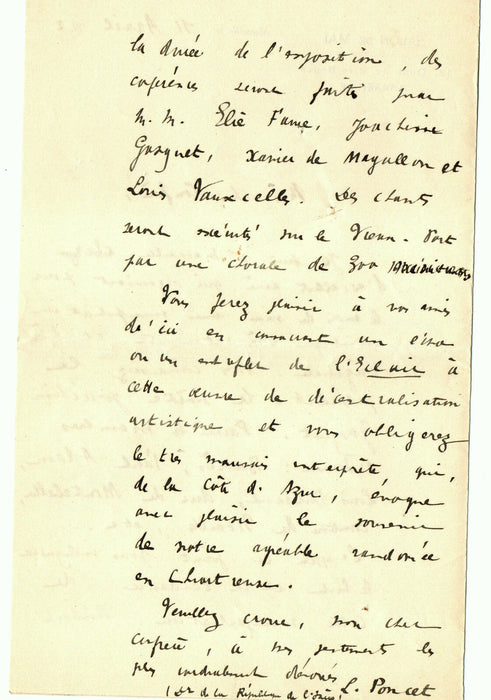 la durée de l'exposition, des
conférences seront faites par
M. M. Elie Faure, Joachim
Gasquet, Xavier de Magallon et
Louis Vauxcelles. Des chants
seront exécutés sur le Vieux-Port
par une chorale de 300
Vous ferez plaisir à vos amis
d'ici en consacrant un écho
ou un entrefilet de l'Eclair à
cette œuvre de décentralisation
artistique et vous obligerez
le très mauvais interprète qui,
de la Côte d'Azur, évoque
avec plaisir le souvenir
de notre agréable randonnée
en Chartreuse.
Veuillez croire, mon cher
confrère, à mes sentiments les
plus cordialement dévoués
L. Poncet
(Dr de la République de l'Isère)